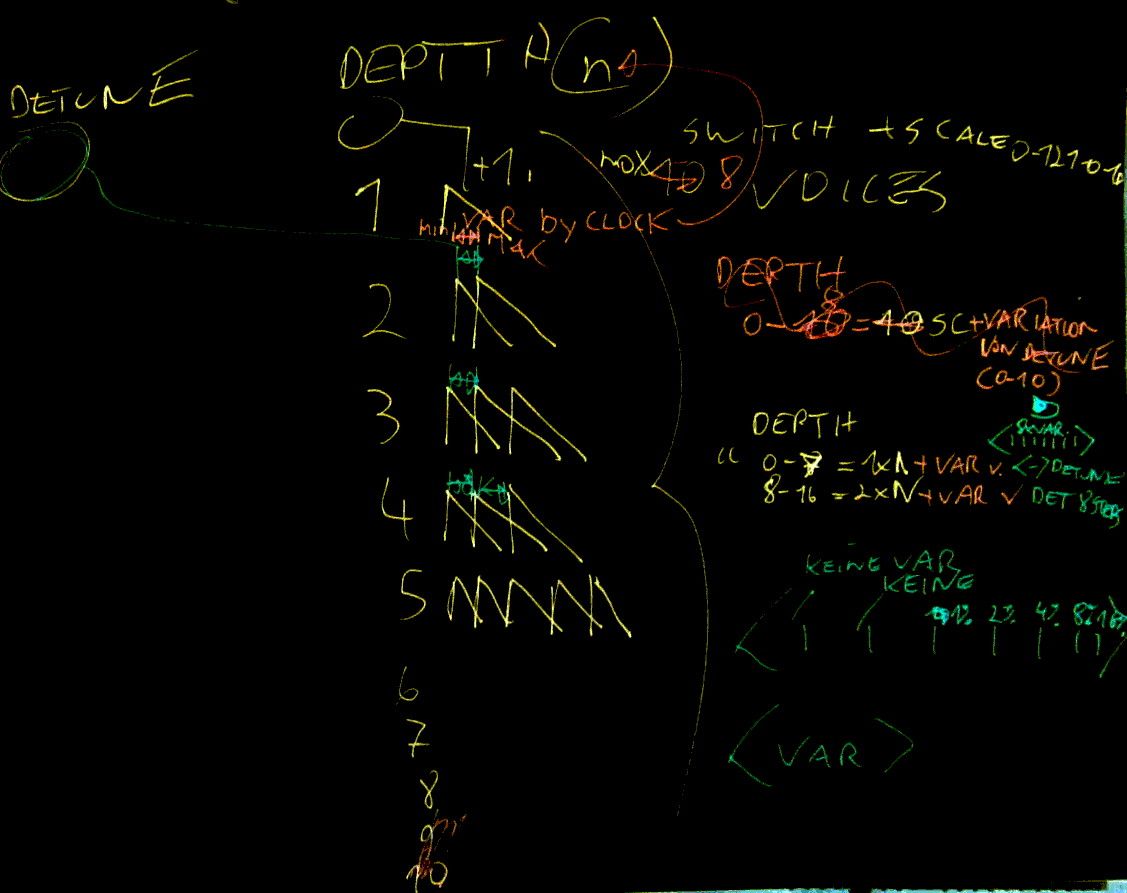 DETUNE
DEPTH (n)
+1.
SWITCH + SCALE
max 8 VOICES
1
VAR by CLOCK
MIN MAX
2
3
4
5
6
7
8
9
10
DEPTH
8
0-10 = 10 SC + VARIATION
VON DETUNE
(0-10)
DEPTH
VAR
0-7 = 1xN + VAR v. <-> DETUNE
8-16 = 2xN + VAR v DET 8 STEPS
KEINE VAR
KEINE
1% 2% 4% 8% 16%
<VAR>